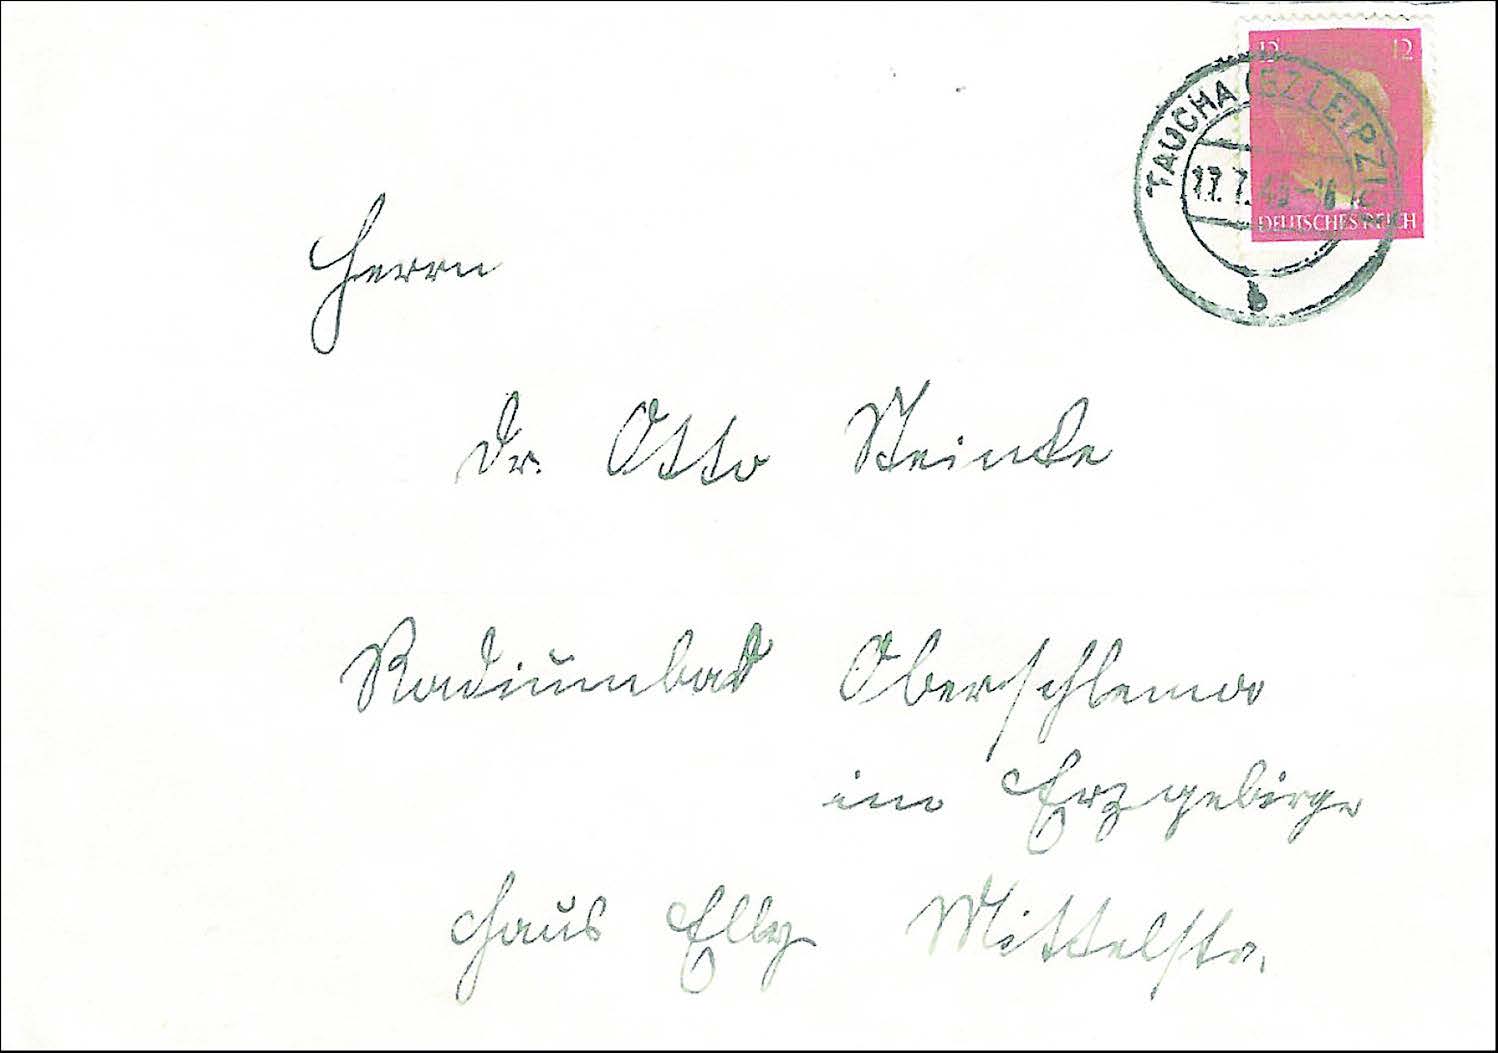 12 12
TAUCHA (BZ LEIPZIG)
DEUTSCHES REICH
b
Herrn
Dr. Otto Steinke
Radiumbad Oberschlema
im Erzgebirge
Haus Elly Mittelstr.